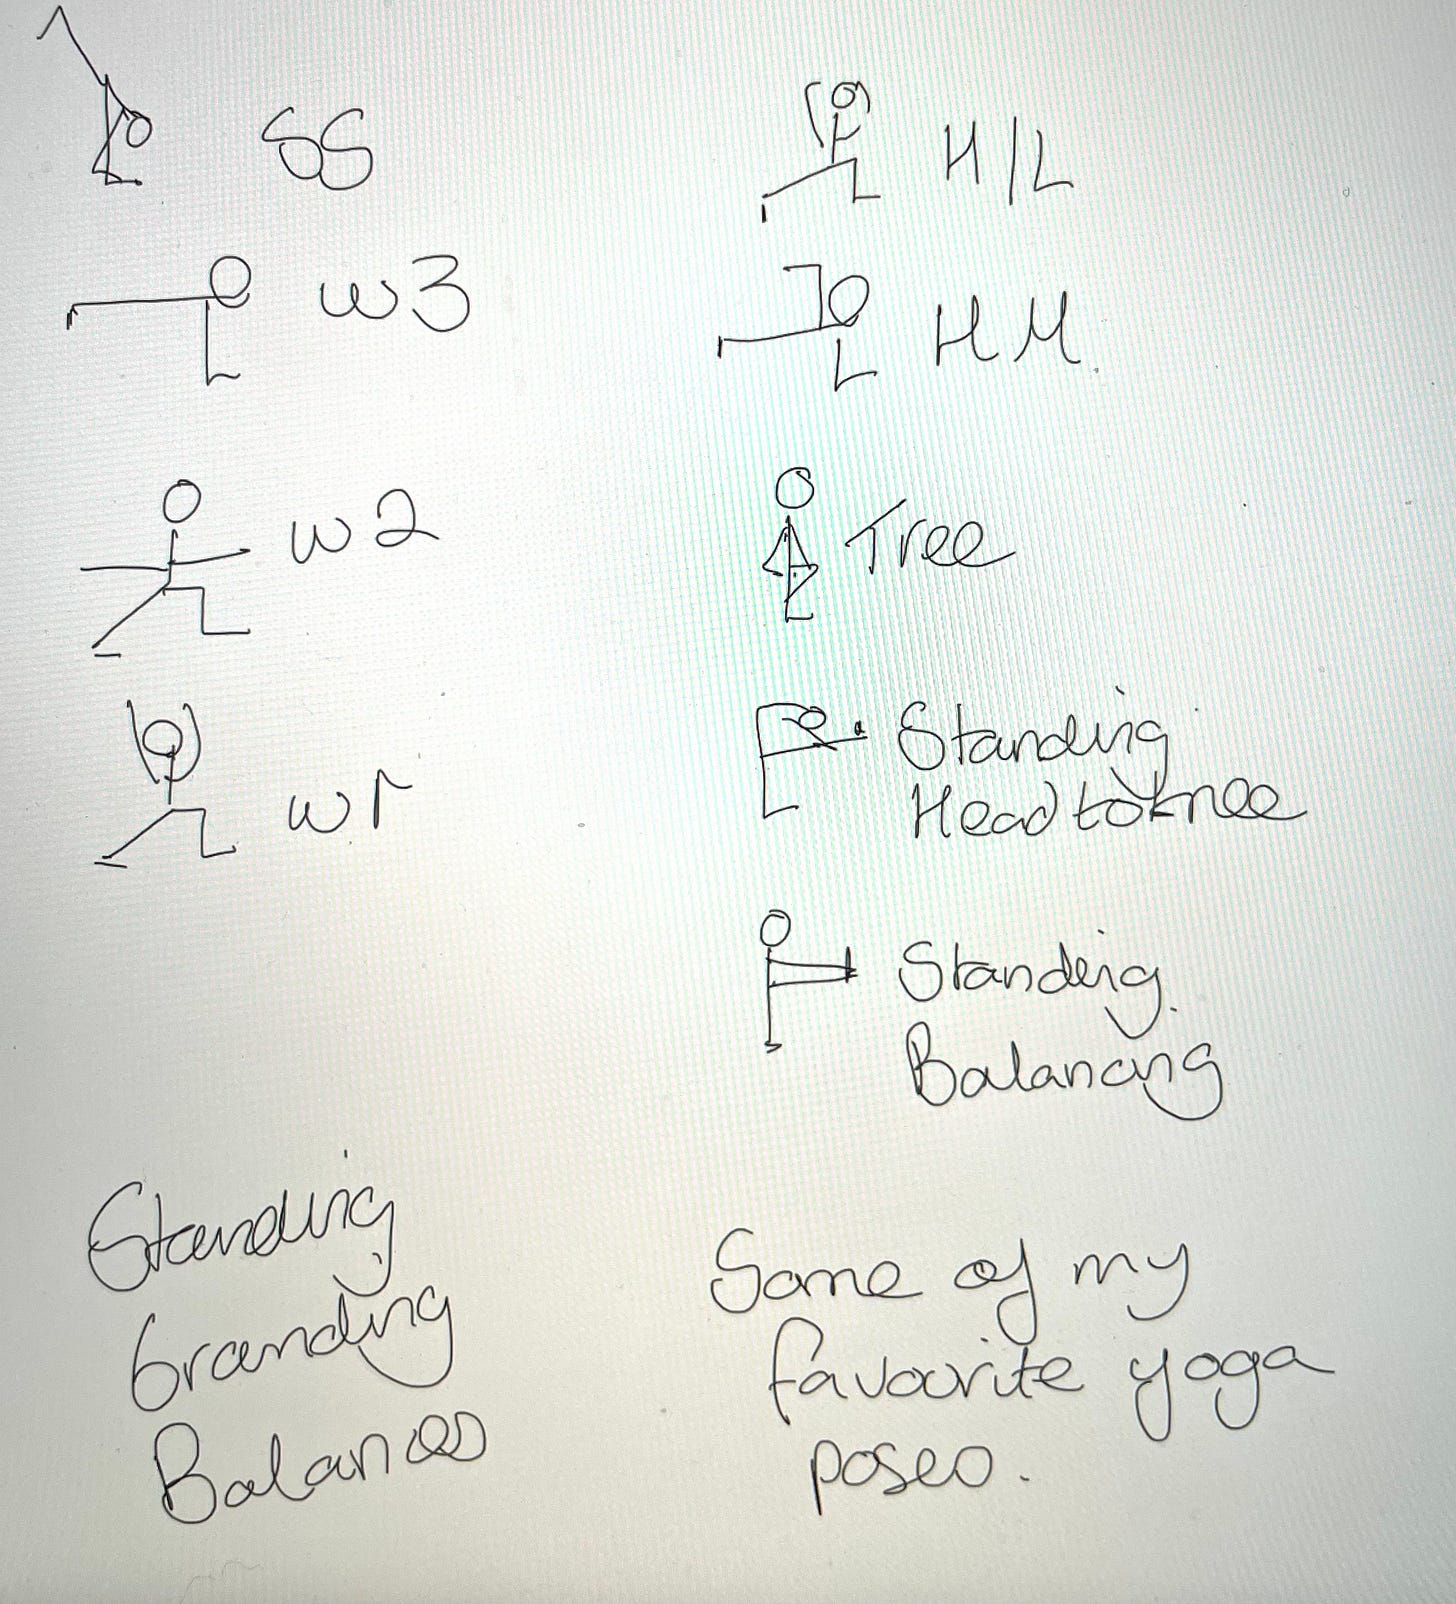 SS
H/L
W3
HM.
W2
Tree
W1
Standing
Head to knee
Standing
Balancing
Standing
branding
Balances
Some of my
favourite yoga
poses.